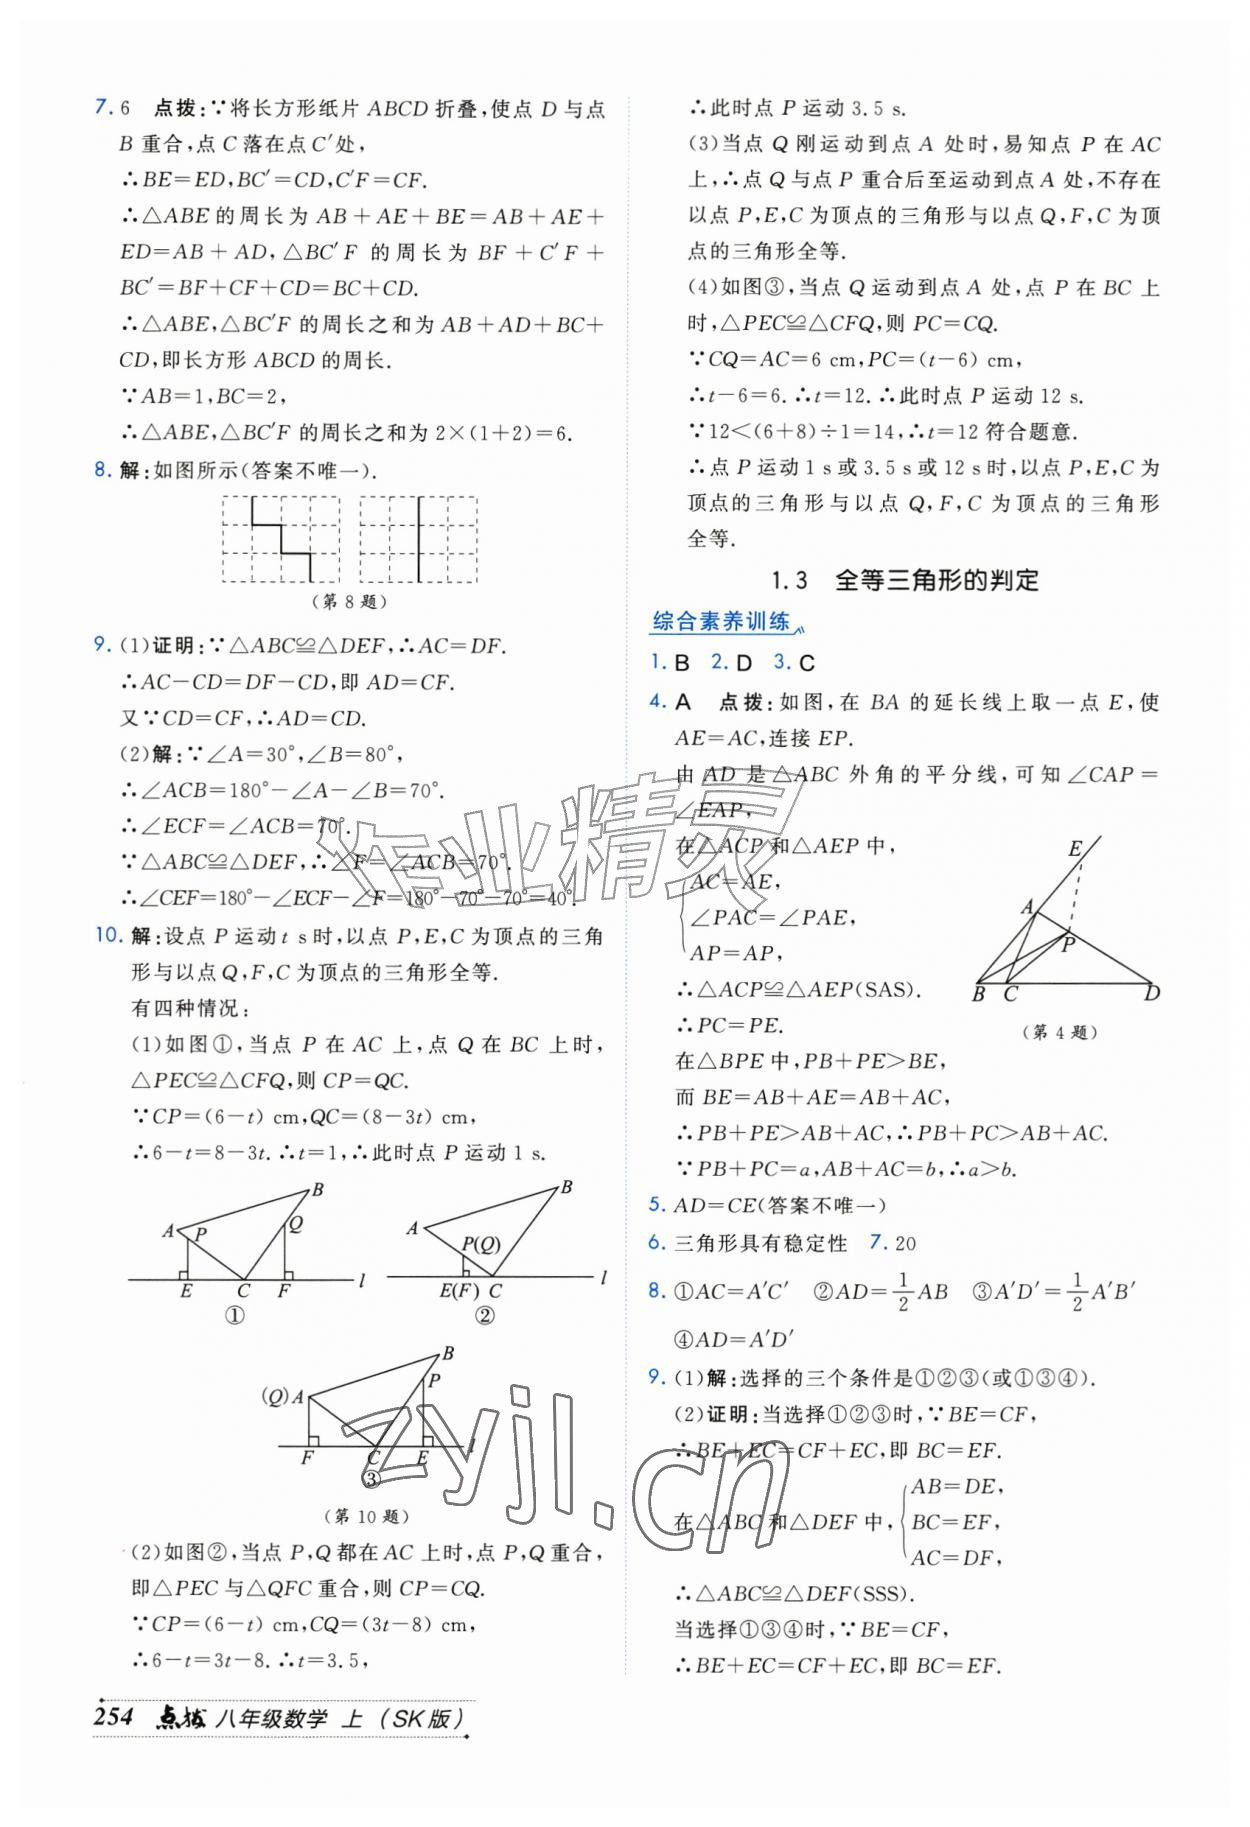 7. 6 点拨:∵将长方形纸片 ABCD 折叠,使点 D 与点
B 重合,点 C 落在点 C′处,
∴BE=ED,BC′=CD,C′F=CF.
∴△ABE 的周长为 AB+AE+BE=AB+AE+
ED=AB+AD,△BC′F 的周长为 BF+C′F+
BC′=BF+CF+CD=BC+CD.
∴△ABE,△BC′F 的周长之和为 AB+AD+BC+
CD,即长方形 ABCD 的周长.
∵AB=1,BC=2,
∴△ABE,△BC′F 的周长之和为 2×(1+2)=6.
8. 解:如图所示(答案不唯一).
(第 8 题)
9. (1)证明:∵△ABC≌△DEF,∴AC=DF.
∴AC-CD=DF-CD,即 AD=CF.
又∵CD=CF,∴AD=CD.
(2)解:∵∠A=30°,∠B=80°,
∴∠ACB=180°-∠A-∠B=70°.
∴∠ECF=∠ACB=70°.
∵△ABC≌△DEF,∴∠F=∠ACB=70°.
∴∠CEF=180°-∠ECF-∠F=180°-70°-70°=40°.
10. 解:设点 P 运动 t s时,以点 P,E,C 为顶点的三角
形与以点 Q,F,C 为顶点的三角形全等.
有四种情况:
(1)如图①,当点 P 在 AC 上,点 Q 在 BC 上时,
△PEC≌△CFQ,则 CP=QC.
∵CP=(6-t) cm,QC=(8-3t) cm,
∴6-t=8-3t.∴t=1,∴此时点 P 运动 1 s.
A P B Q E C F l
①
A B P(Q) E(F) C l
②
(Q) A B P F C E l
③
(第 10 题)
(2)如图②,当点 P,Q 都在 AC 上时,点 P,Q 重合,
即△PEC 与△QFC 重合,则 CP=CQ.
∵CP=(6-t) cm,CQ=(3t-8) cm,
∴6-t=3t-8.∴t=3.5,
254 点拨 八年级数学 上 (SK版)
∴此时点 P 运动 3.5 s.
(3)当点 Q 刚运动到点 A 处时,易知点 P 在 AC
上,∴点 Q 与点 P 重合后至运动到点 A 处,不存在
以点 P,E,C 为顶点的三角形与以点 Q,F,C 为顶
点的三角形全等.
(4)如图③,当点 Q 运动到点 A 处,点 P 在 BC 上
时,△PEC≌△CFQ,则 PC=CQ.
∵CQ=AC=6 cm,PC=(t-6) cm,
∴t-6=6.∴t=12.∴此时点 P 运动 12 s.
∵12<(6+8)÷1=14,∴t=12 符合题意.
∴点 P 运动 1 s 或 3.5 s 或 12 s 时,以点 P,E,C 为
顶点的三角形与以点 Q,F,C 为顶点的三角形
全等.
1.3 全等三角形的判定
综合素养训练
1. B 2. D 3. C
4. A 点拨:如图,在 BA 的延长线上取一点 E,使
AE=AC,连接 EP.
由 AD 是△ABC 外角的平分线,可知∠CAP=
∠EAP,
在△ACP 和△AEP 中,
AC=AE,
∠PAC=∠PAE,
AP=AP,
∴△ACP≌△AEP(SAS).
∴PC=PE.
E A P B C D
(第 4 题)
在△BPE 中,PB+PE>BE,
而 BE=AB+AE=AB+AC,
∴PB+PE>AB+AC,∴PB+PC>AB+AC.
∵PB+PC=a,AB+AC=b,∴a>b.
5. AD=CE(答案不唯一)
6. 三角形具有稳定性 7. 20
8. ①AC=A′C′ ②AD=1/2 AB ③A′D′=1/2 A′B′
④AD=A′D′
9. (1)解:选择的三个条件是①②③(或①③④).
(2)证明:当选择①②③时,∵BE=CF,
∴BE+EC=CF+EC,即 BC=EF.
AB=DE,
在△ABC 和△DEF 中, BC=EF,
AC=DF,
∴△ABC≌△DEF(SSS).
当选择①③④时,∵BE=CF,
∴BE+EC=CF+EC,即 BC=EF.
作业精灵
zyjl.cn